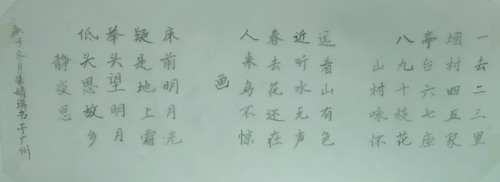 一去二三里
烟村四五家
亭台六七座
八九十枝花
山村咏怀
远看山有色
近听水无声
春去花还在
人来鸟不惊
画
床前明月光
疑是地上霜
举头望明月
低头思故乡
静夜思